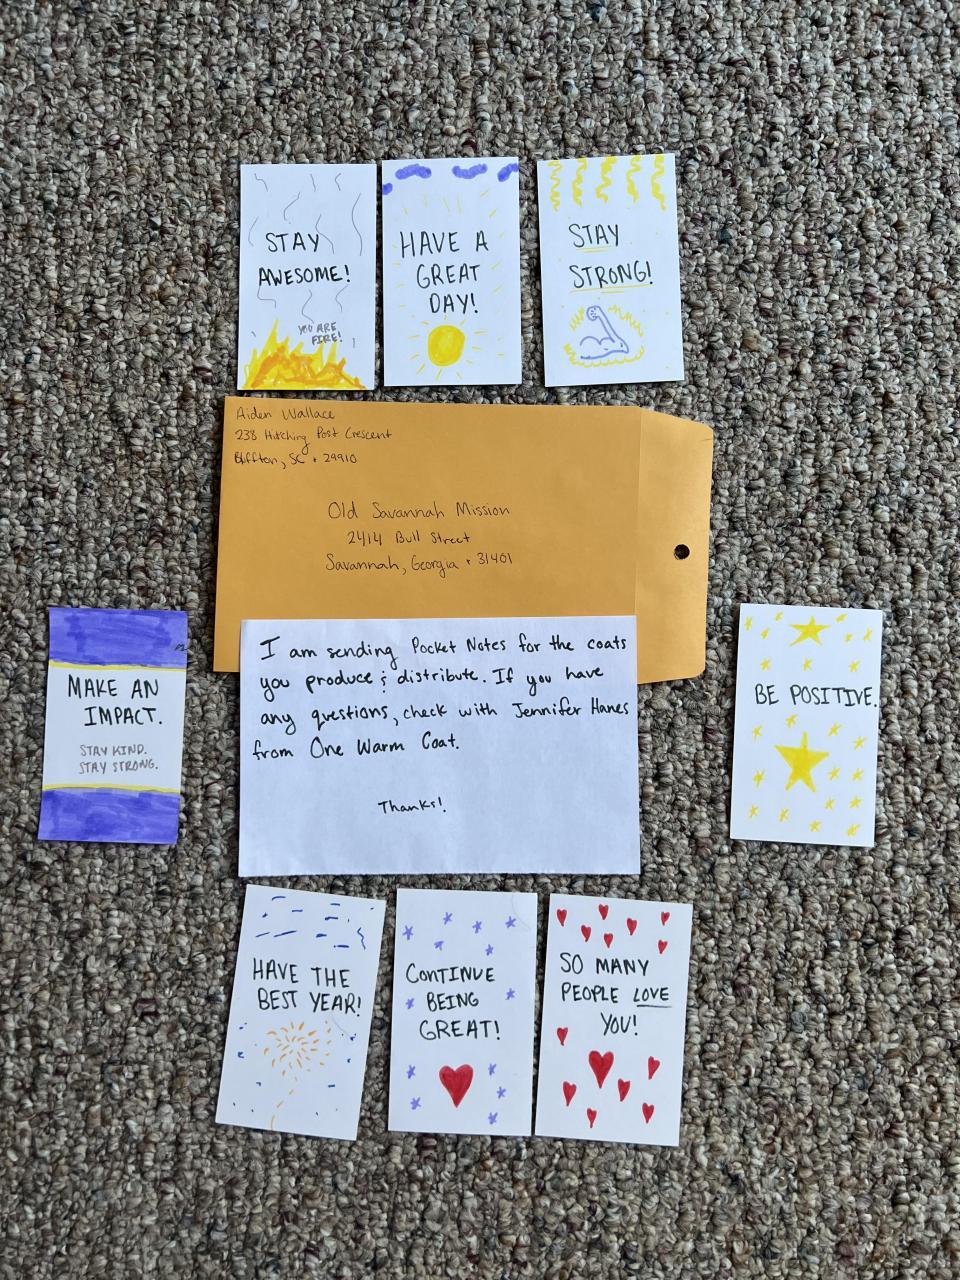 STAY
AWESOME!
YOU ARE
FIRE!
HAVE A
GREAT
DAY!
STAY
STRONG!
Aiden Wallace
238 Hitching Post Crescent
Bluffton, SC • 29910
Old Savannah Mission
2414 Bull Street
Savannah, Georgia • 31401
MAKE AN
IMPACT.
STAY KIND.
STAY STRONG.
I am sending Pocket Notes for the coats
you produce & distribute. If you have
any questions, check with Jennifer Hanes
from One Warm Coat.
Thanks!
BE POSITIVE.
HAVE THE
BEST YEAR!
CONTINUE
BEING
GREAT!
SO MANY
PEOPLE LOVE
YOU!